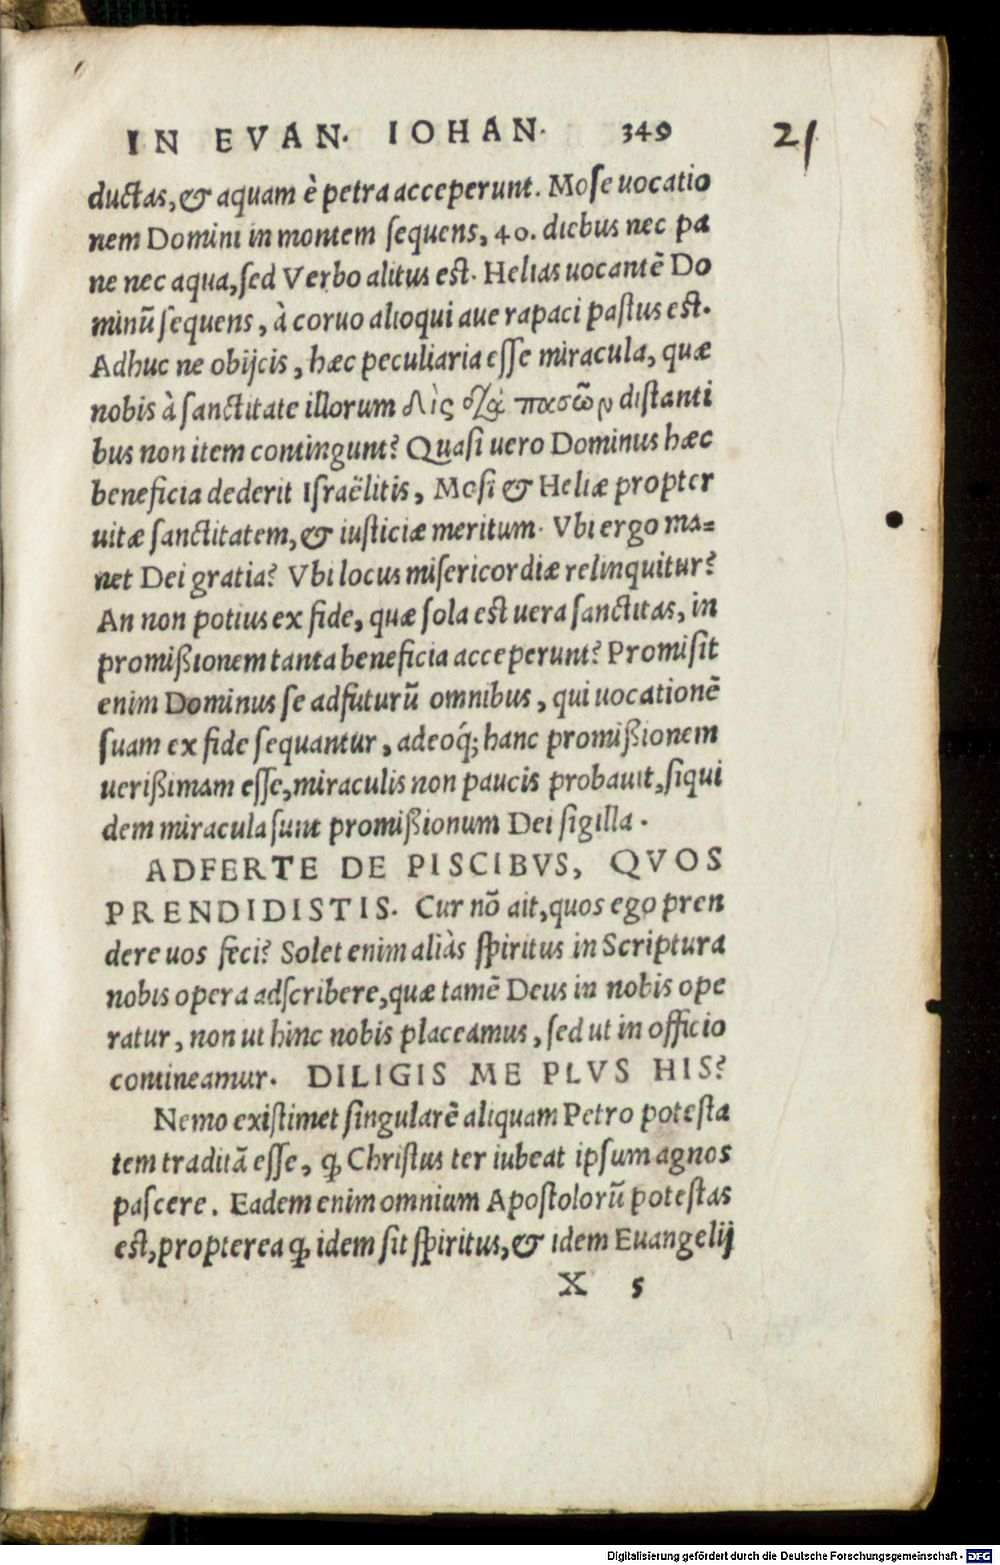 IN EVAN. IOHAN. 349 21
ductas, & aquam è petra acceperunt. Mose uocatio
nem Domini in montem sequens, 40. diebus nec pa
ne nec aqua, sed Verbo alitus est. Helias uocantē Do
minū sequens, à coruo alioqui aue rapaci pastus est.
Adhuc ne obijcis, hæc peculiaria esse miracula, quæ
nobis à sanctitate illorum δὶς πασῶν distanti
bus non item contingunt? Quasi uero Dominus hæc
beneficia dederit Israëlitis, Mosi & Heliæ propter
uitæ sanctitatem, & iusticiæ meritum. Vbi ergo ma=
net Dei gratia? Vbi locus misericordiæ relinquitur?
An non potius ex fide, quæ sola est uera sanctitas, in
promißionem tanta beneficia acceperunt? Promisit
enim Dominus se adfuturū omnibus, qui uocationē
suam ex fide sequantur, adeoq́; hanc promißionem
uerißimam esse, miraculis non paucis probauit, siqui
dem miracula sunt promißionum Dei sigilla.
ADFERTE DE PISCIBVS, QVOS
PRENDIDISTIS. Cur nō ait, quos ego pren
dere uos feci? Solet enim aliàs spiritus in Scriptura
nobis opera adscribere, quæ tamē Deus in nobis ope
ratur, non ut hinc nobis placeamus, sed ut in officio
contineamur. DILIGIS ME PLVS HIS?
Nemo existimet singularē aliquam Petro potesta
tem traditā esse, ꝙ Christus ter iubeat ipsum agnos
pascere. Eadem enim omnium Apostolorū potestas
est, propterea ꝙ idem sit spiritus, & idem Euangelij
X 5
Digitalisierung gefördert durch die Deutsche Forschungsgemeinschaft - DFG